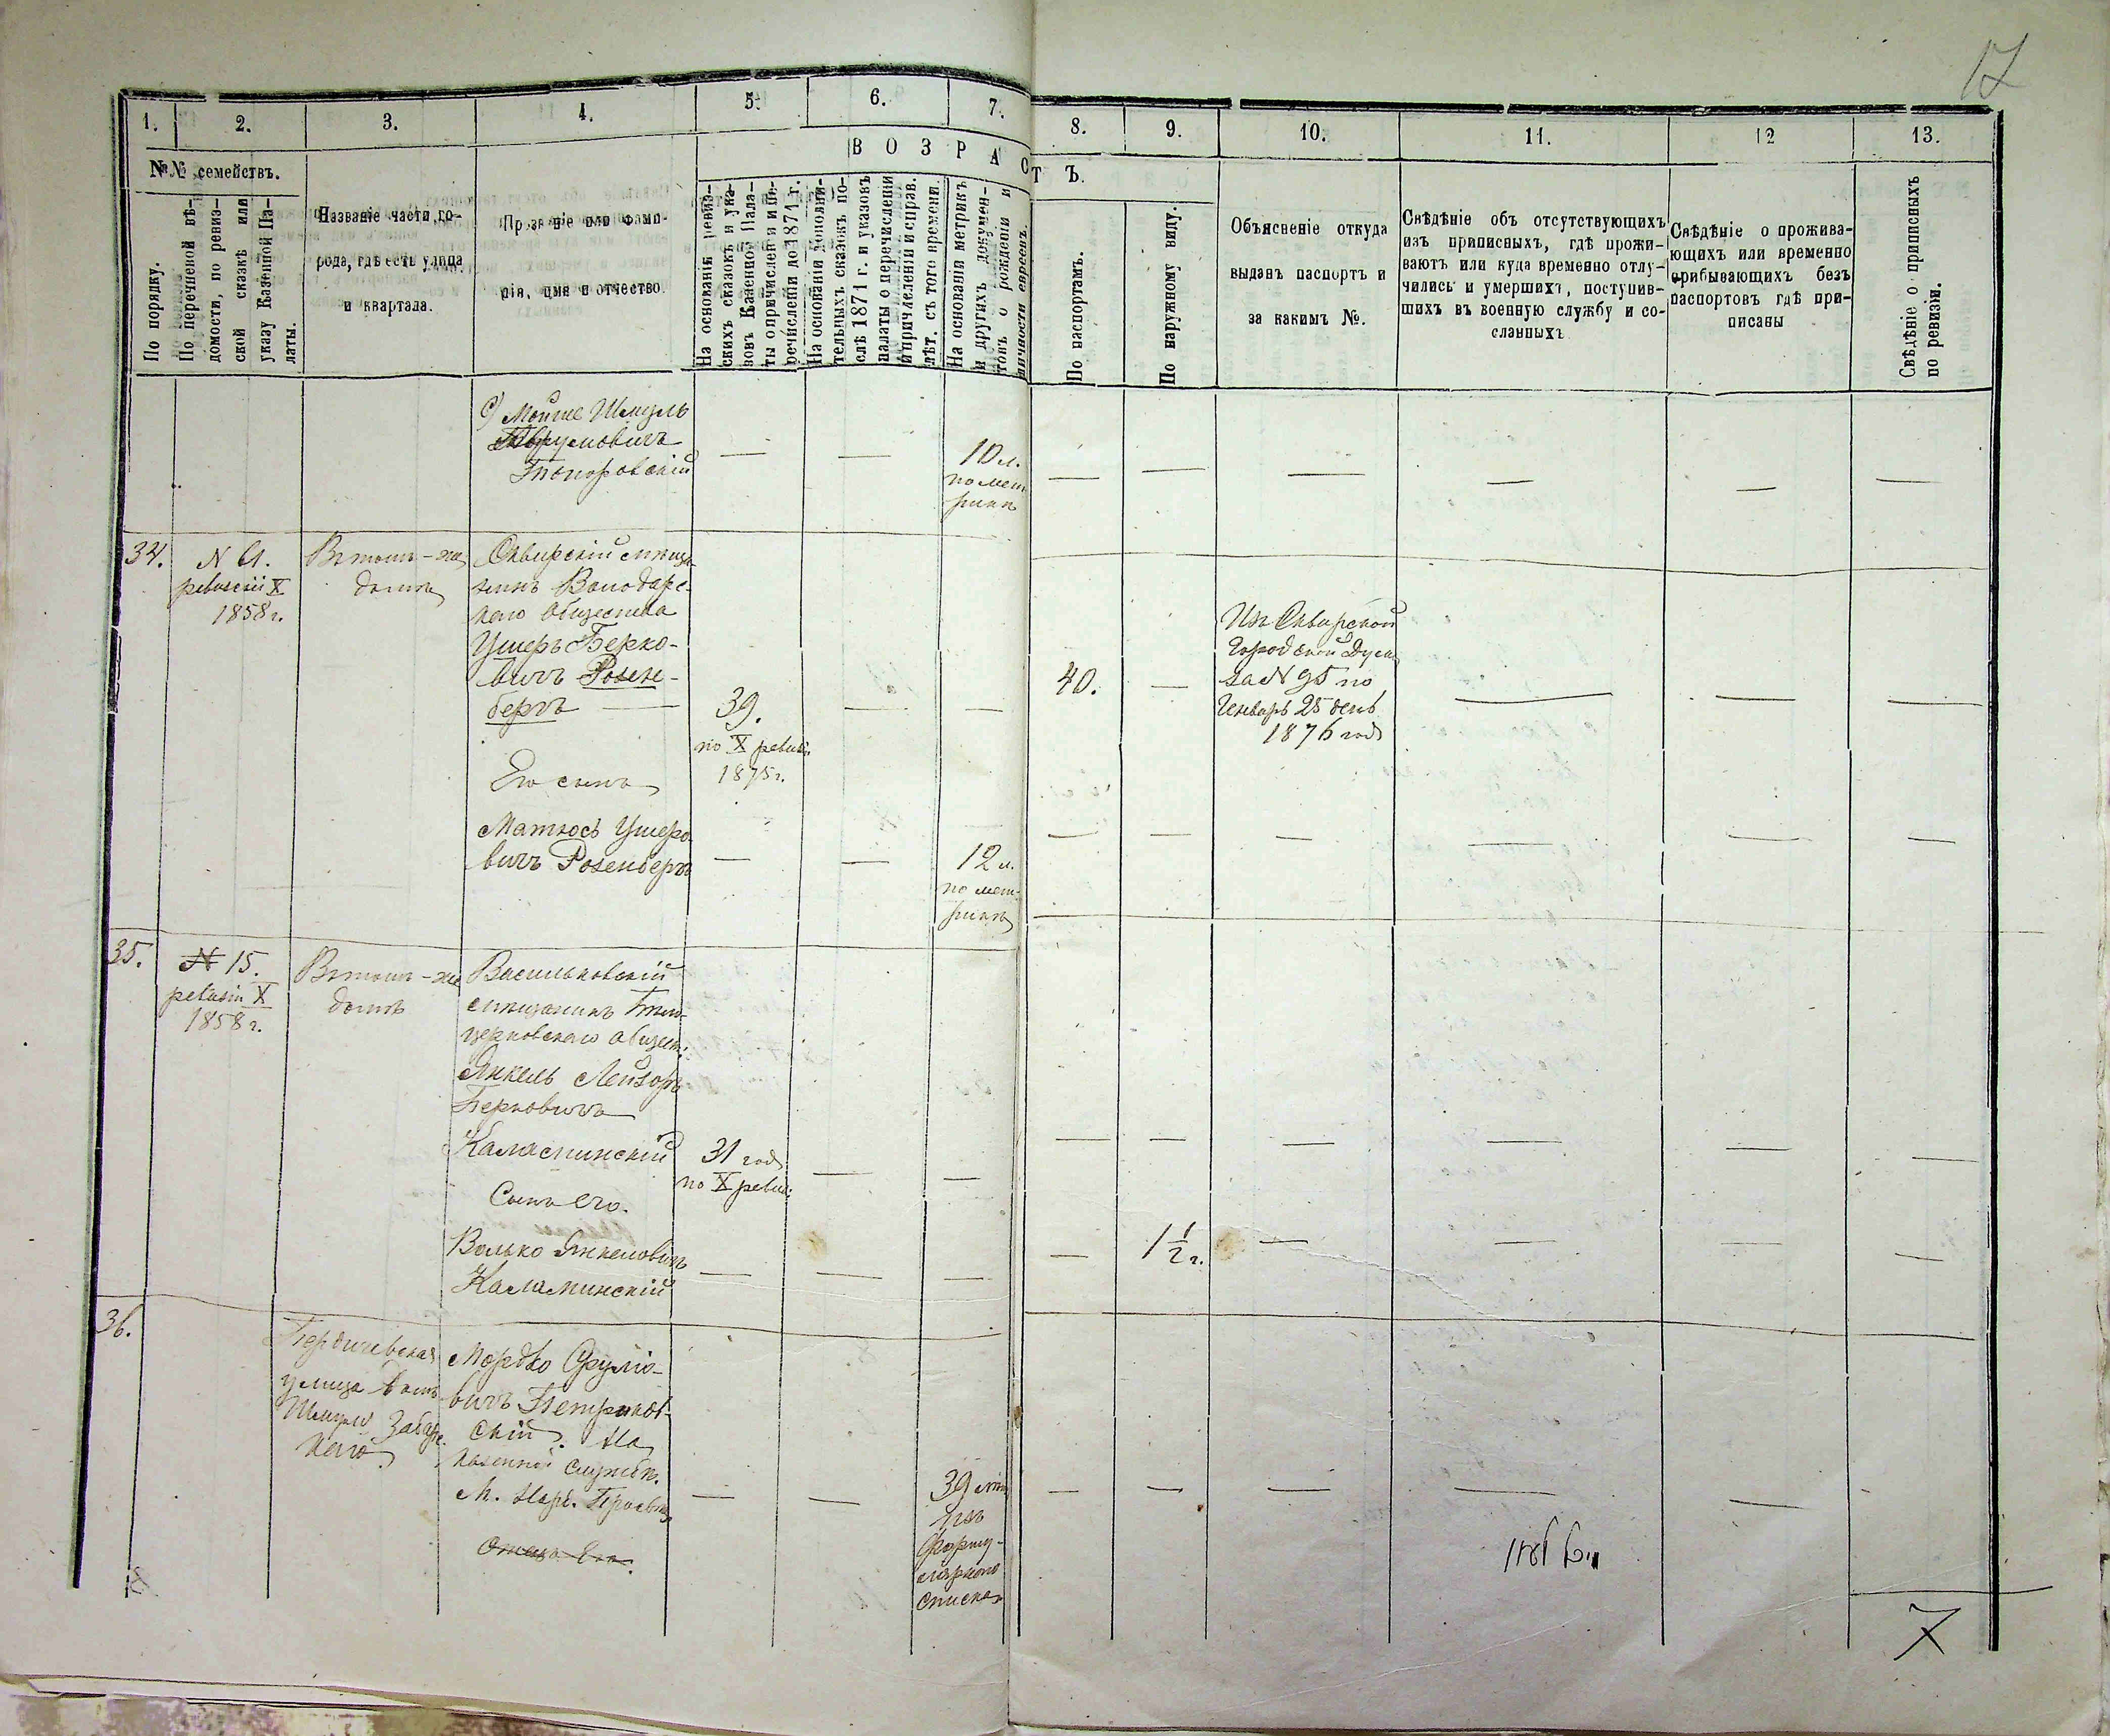 17
1.
2.
3.
4.
5.
6.
7.
8.
9.
10.
11.
12
13.
№№ семействъ.
ВОЗРАСТЪ.
По порядку.
По перечневой вѣ-
домости, по ревиз-
ской сказкѣ или
указу Казенной Па-
латы.
Названіе части го-
рода, гдѣ есть улица
и квартала.
Прозваніе или фами-
лія, имя и отчество.
На основаніи ревиз-
скихъ сказокъ и ука-
зовъ Казенной Пала-
ты о причисленіи и пе-
речисленіи до 1871 г.
На основаніи дополни-
тельныхъ сказокъ по-
слѣ 1871 г. и указовъ
палаты о перечисленіи
и причисленіи и справ.
лѣт. съ того времени.
На основаніи метрикъ
и другихъ докумен-
товъ о рожденіи и
личности евреевъ.
По паспортамъ.
По наружному виду.
Объясненіе откуда
выданъ паспортъ и
за какимъ №.
Свѣдѣніе объ отсутствующихъ
изъ приписныхъ, гдѣ прожи-
ваютъ или куда временно отлу-
чились и умершихъ, поступив-
шихъ въ военную службу и со-
сланныхъ
Свѣдѣніе о прожива-
ющихъ или временно
прибывающихъ безъ
паспортовъ гдѣ при-
писаны
Свѣдѣніе о приписныхъ
по ревизіи.
Мойше Шмуль
Топоровскій
10 л.
по мет
рикѣ
34.
ревизіи X
1858 г.
Въ томъ-же
домѣ
Сквирскій мѣща-
нинъ Володарс-
каго общества
Ушеръ Берко-
вичъ Розен-
бергъ
39.
по X ревизіи
1875 г.
40.
Изъ Сквирской
Городской Думы
за № 95 по
Генварь 25 день
1876 года
Его сынъ
Матюсъ Ушеро
вичъ Розенбергъ
12 л.
по мет-
рикѣ
35.
№ 15.
ревизіи X
1858 г.
Въ томъ-же
домѣ
Васильковскій
мѣщанинъ Бѣло-
церковскаго общест:
Янкель Лейзоръ
Берковичъ
Каламинскій
31 годъ
по X ревиз:
Сынъ его.
Волько Янкеловичъ
Каламинскій
1 1/2 г.
36.
Бердичевская
улица домъ
Шмуля
Мордко Сруліо-
вичъ Петриков-
скій. На
казенной службѣ.
39 лѣтъ
изъ
форму-
лярного
списка
Отецъ его.
7